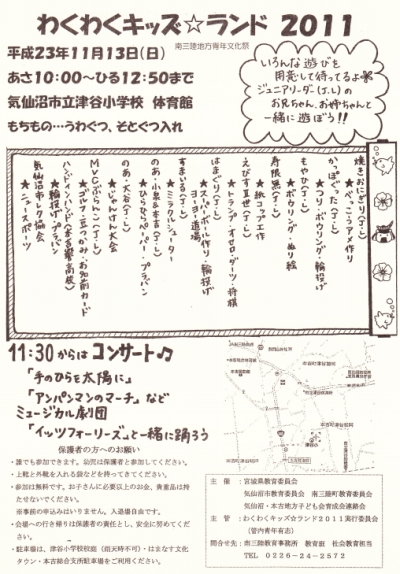 わくわくキッズ☆ランド 2011
南三陸地方青年文化祭
平成23年11月13日(日)
あさ10:00～ひる12:50まで
気仙沼市立津谷小学校 体育館
もちもの…うわぐつ、そとぐつ入れ
いろんな遊びを
用意して待ってるよ
ジュニアリーダー(J.L)の
お兄ちゃん、お姉ちゃんと
一緒に遊ぼう!!
焼きおにぎり(J・L)
★べっこうアメ作り
かっぱぐった(J・L)
★つり・ボウリング・輪投げ
もやひ(J・L)
★ボウリング・ぬり絵
寿限無(J・L)
★紙コップ工作
えびす豆世(J・L)
★トランプ・オセロ・ダーツ・将棋
はまぐり(J・L)
★スーパーボール作り・輪投げ
★ヨーヨー道場
すまいる(J・L)
★ミラクルシューター
のあ・小泉&本吉(J・L)
★ひらひらペーパー・プラバン
のあ・大谷(J・L)
★じゃんけん大会
MVCぷらんこ(J・L)
★ゴルフ・豆つかみ・お名前カード
ハンドインハンド(本吉響高校)
★輪投げ・プラバン
気仙沼市レク協会
★ニュースポーツ
11:30からは コンサート♫
「手のひらを太陽に」
「アンパンマンのマーチ」など
ミュージカル劇団
「イッツフォーリーズ」と一緒に踊ろう
保護者の方へのお願い
・誰でも参加できます。幼児は保護者と参加してください。
・上靴と外靴を入れる袋などを持ってきてください。
・参加は無料です。お子さんに必要以上のお金、貴重品は持
たせないでください。
※事前の申込みはいりません。入退場自由です。
・会場への行き帰りは保護者の責任とし、安全に努めてくだ
さい。
・駐車場は、津谷小学校校庭(雨天時不可)・はまなす文化
タウン・本吉総合支所駐車場をご利用ください。
主催：宮城県教育委員会
気仙沼市教育委員会 南三陸町教育委員会
気仙沼・本吉地方子ども会育成会連絡会
主管：わくわくキッズ☆ワールド2011実行委員会
(管内青年有志)
問合せ先：南三陸教育事務所 教育班 社会教育担当
TEL 0226-24-2572